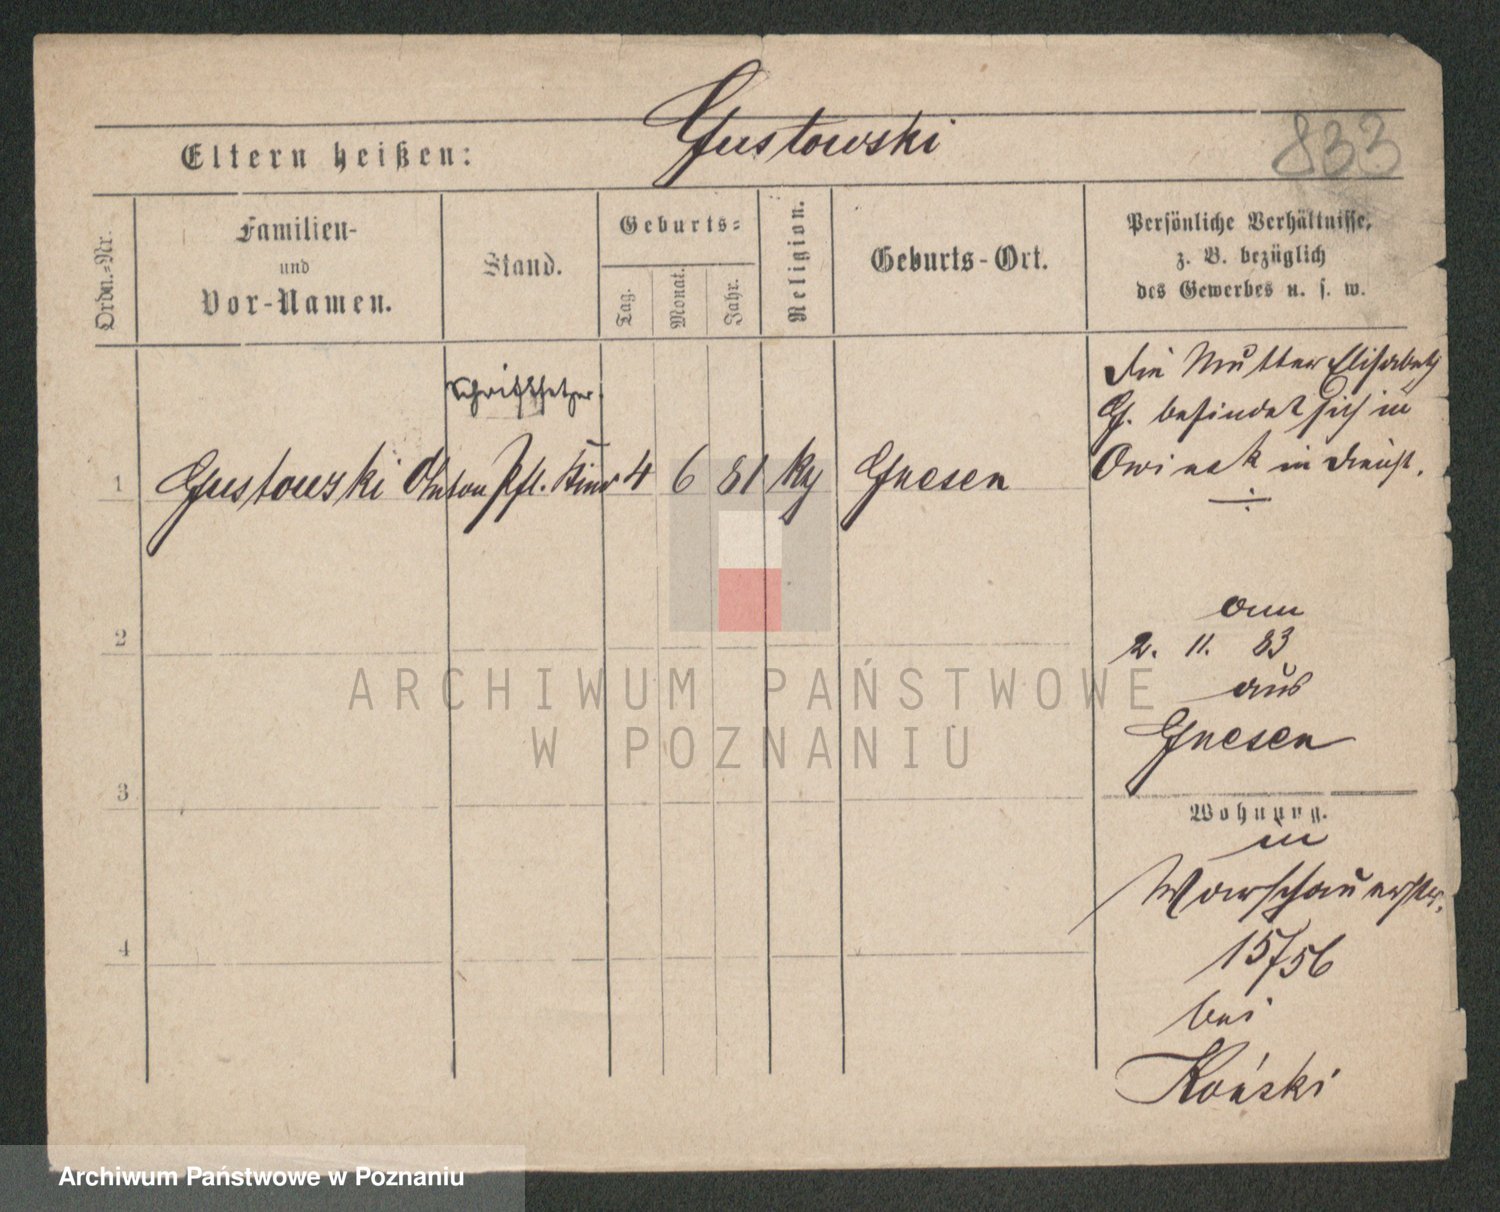 Gustowski
833
Eltern heißen:
Ordn.=Nr.
Familien-
und
Vor-Namen.
Stand.
Geburts=
Tag.
Monat.
Jahr.
Religion.
Geburts-Ort.
Persönliche Verhältnisse,
z. B. bezüglich
des Gewerbes u. s. w.
Schriftsetzer.
1 Gustowski Anton Pfl. Kind 4 6 81 Gnesen
die Mutter Elisabeth
G. befindet sich in
Owinsk in Dienst.
2
am
2. 11. 83
aus
Gnesen
3
Wohnung.
in
Warschauerstr.
15/56
bei
Koński
4
ARCHIWUM PAŃSTWOWE
W POZNANIU
Archiwum Państwowe w Poznaniu